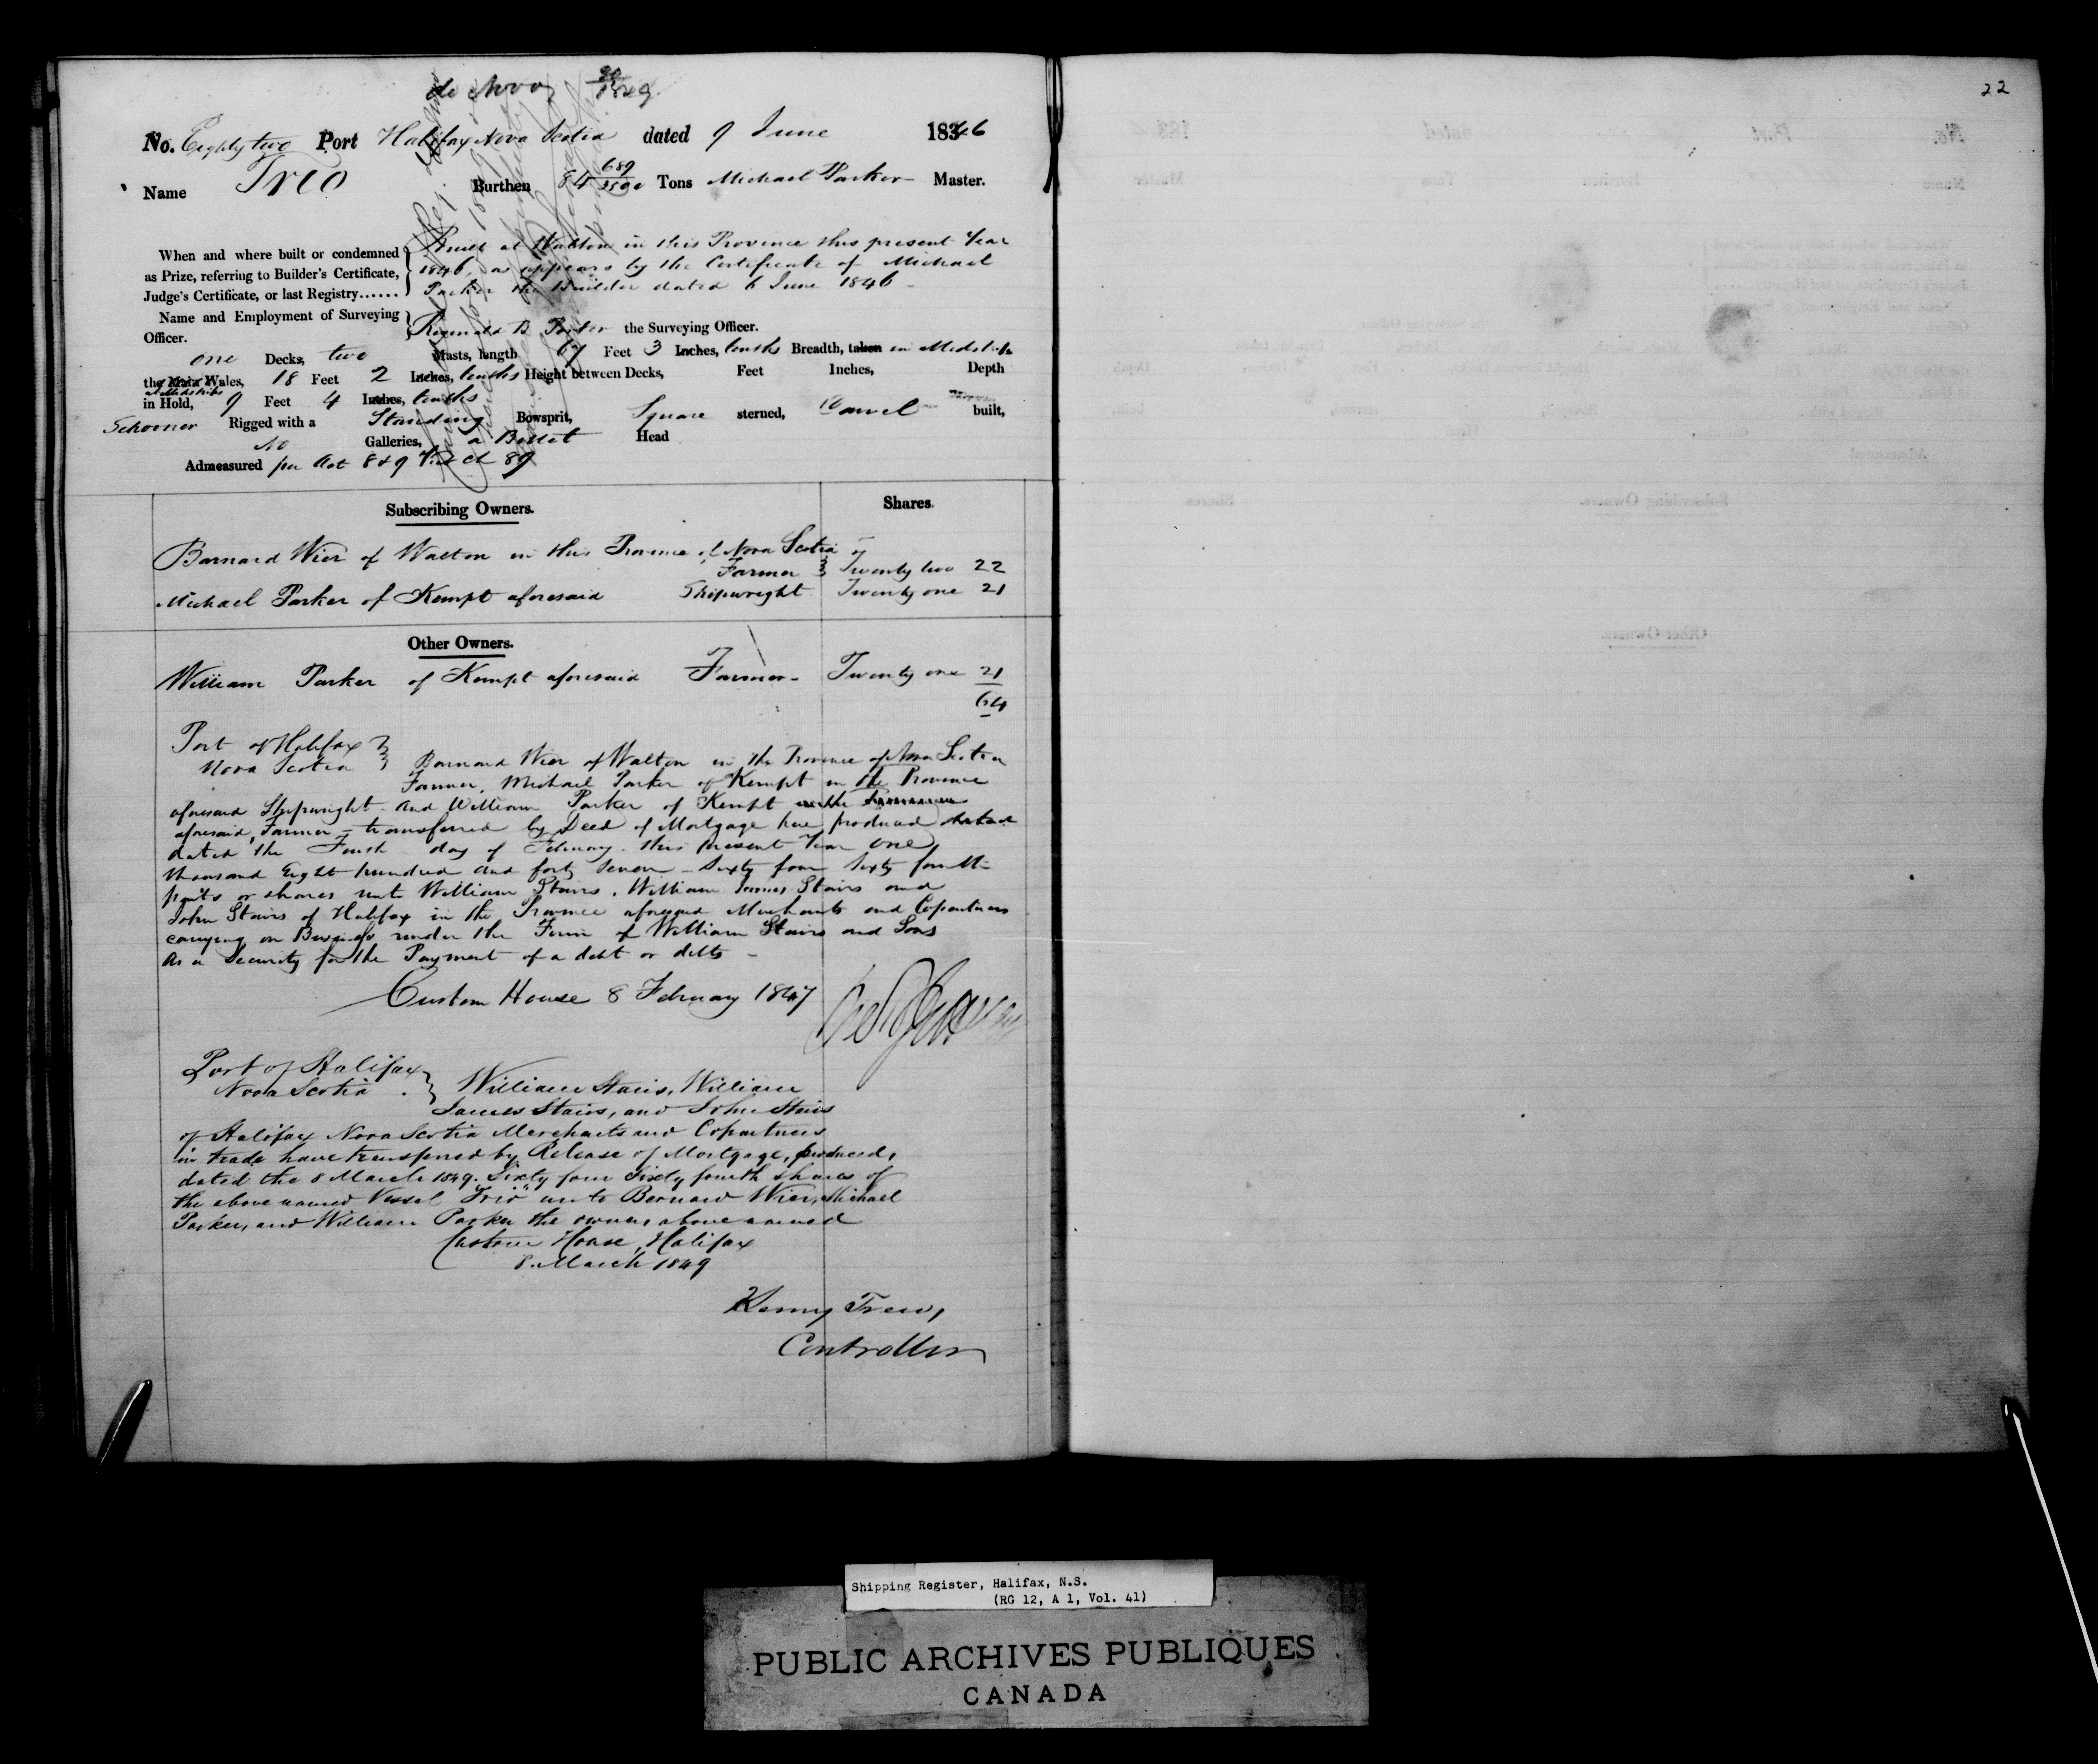 de Novo 20/1849
22
No. Eighty two Port Halifax Nova Scotia dated 9 June 1846
Name Trio Burthen 84 689/3500 Tons Michael Parker Master.
When and where built or condemned
as Prize, referring to Builder's Certificate,
Judge's Certificate, or last Registry......
Built at Walton in this Province this present Year
1846, as appears by the Certificate of Michael
Parker the Builder dated 6 June 1846
Name and Employment of Surveying
Officer.
Reginald B Porter the Surveying Officer.
one Decks, two Masts, length 67 Feet 3 Inches, tenths Breadth, taken in Midships
the Main Wales, 18 Feet 2 Inches, tenths Height between Decks, Feet Inches, Depth
at Midships
in Hold, 9 Feet 4 Inches, tenths
Schooner Rigged with a Standing Bowsprit, Square sterned, Carvel built,
No Galleries, a Billet Head
Admeasured per Act 8 & 9 Vic Ch 89
Subscribing Owners. Shares.
Barnard Wier of Walton in this Province of Nova Scotia
Farmer Twenty two 22
Michael Parker of Kempt aforesaid Shipwright Twenty one 21
Other Owners.
William Parker of Kempt aforesaid Farmer - Twenty one 21
64
Port of Halifax
Nova Scotia Barnard Wier of Walton in the Province of Nova Scotia
Farmer, Michael Parker of Kempt in the Province
aforesaid Shipwright and William Parker of Kempt in the Province
aforesaid, Farmer - transferred by Deed of Mortgage here produced
dated the Fourth day of February this present Year One
thousand Eight hundred and forty seven - Sixty four Sixty fourth
parts or shares unto William Stairs, William James Stairs and
John Stairs of Halifax in the Province aforesaid Merchants and Copartners
carrying on Business under the Firm of William Stairs and Sons
As a Security for the Payment of a debt or debts -
Custom House 8 February 1847
Port of Halifax
Nova Scotia William Stairs, William
James Stairs, and John Stairs
of Halifax Nova Scotia Merchants and Copartners
in trade have transferred by Release of Mortgage, produced,
dated the 8 March 1849. Sixty four Sixty fourth shares of
the above named Vessel "Trio" unto Bernard Wier, Michael
Parker, and William Parker the owners above named
Custom House, Halifax
8. March 1849
Henry Trew,
Controller
Shipping Register, Halifax, N.S.
(RG 12, A 1, Vol. 41)
PUBLIC ARCHIVES PUBLIQUES
CANADA